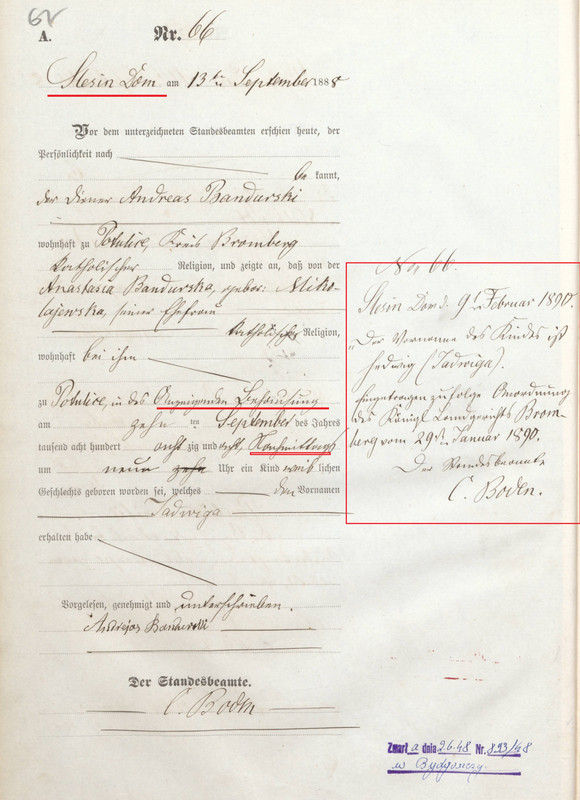 62
A.
Nr. 66
Slesin Dom am 13ten September 1888
Vor dem unterzeichneten Standesbeamten erschien heute, der
Persönlichkeit nach
be kannt,
der Diener Andreas Bandurski
wohnhaft zu Potulice, Kreis Bromberg
katholischer Religion, und zeigte an, daß von der
Anastasia Bandurska, gebor: Miko-
lajewska, seiner Ehefrau
katholischer Religion,
wohnhaft bei ihm
zu Potulice, in des Anzeigenden Behausung
am zehn ten September des Jahres
tausend acht hundert acht zig und acht, Nachmittags
um neun zehn Uhr ein Kind weib lichen
Geschlechts geboren worden sei, welches den Vornamen
Jadwiga
erhalten habe
Vorgelesen, genehmigt und unterschrieben.
Andrejas Bandurski
Der Standesbeamte.
C. Boden
No. 66.
Slesin Dom d. 9t. Februar 1890.
"Der Vorname des Kindes ist
Hedwig (Jadwiga).
Eingetragen zufolge Anordnung
des Königl. Landgerichts Brom-
berg vom 29t. Januar 1890.
Der Standesbeamte
C. Boden.
Zmarł a dnia 9.6.48 Nr. 893/48
w Bydgoszczy.